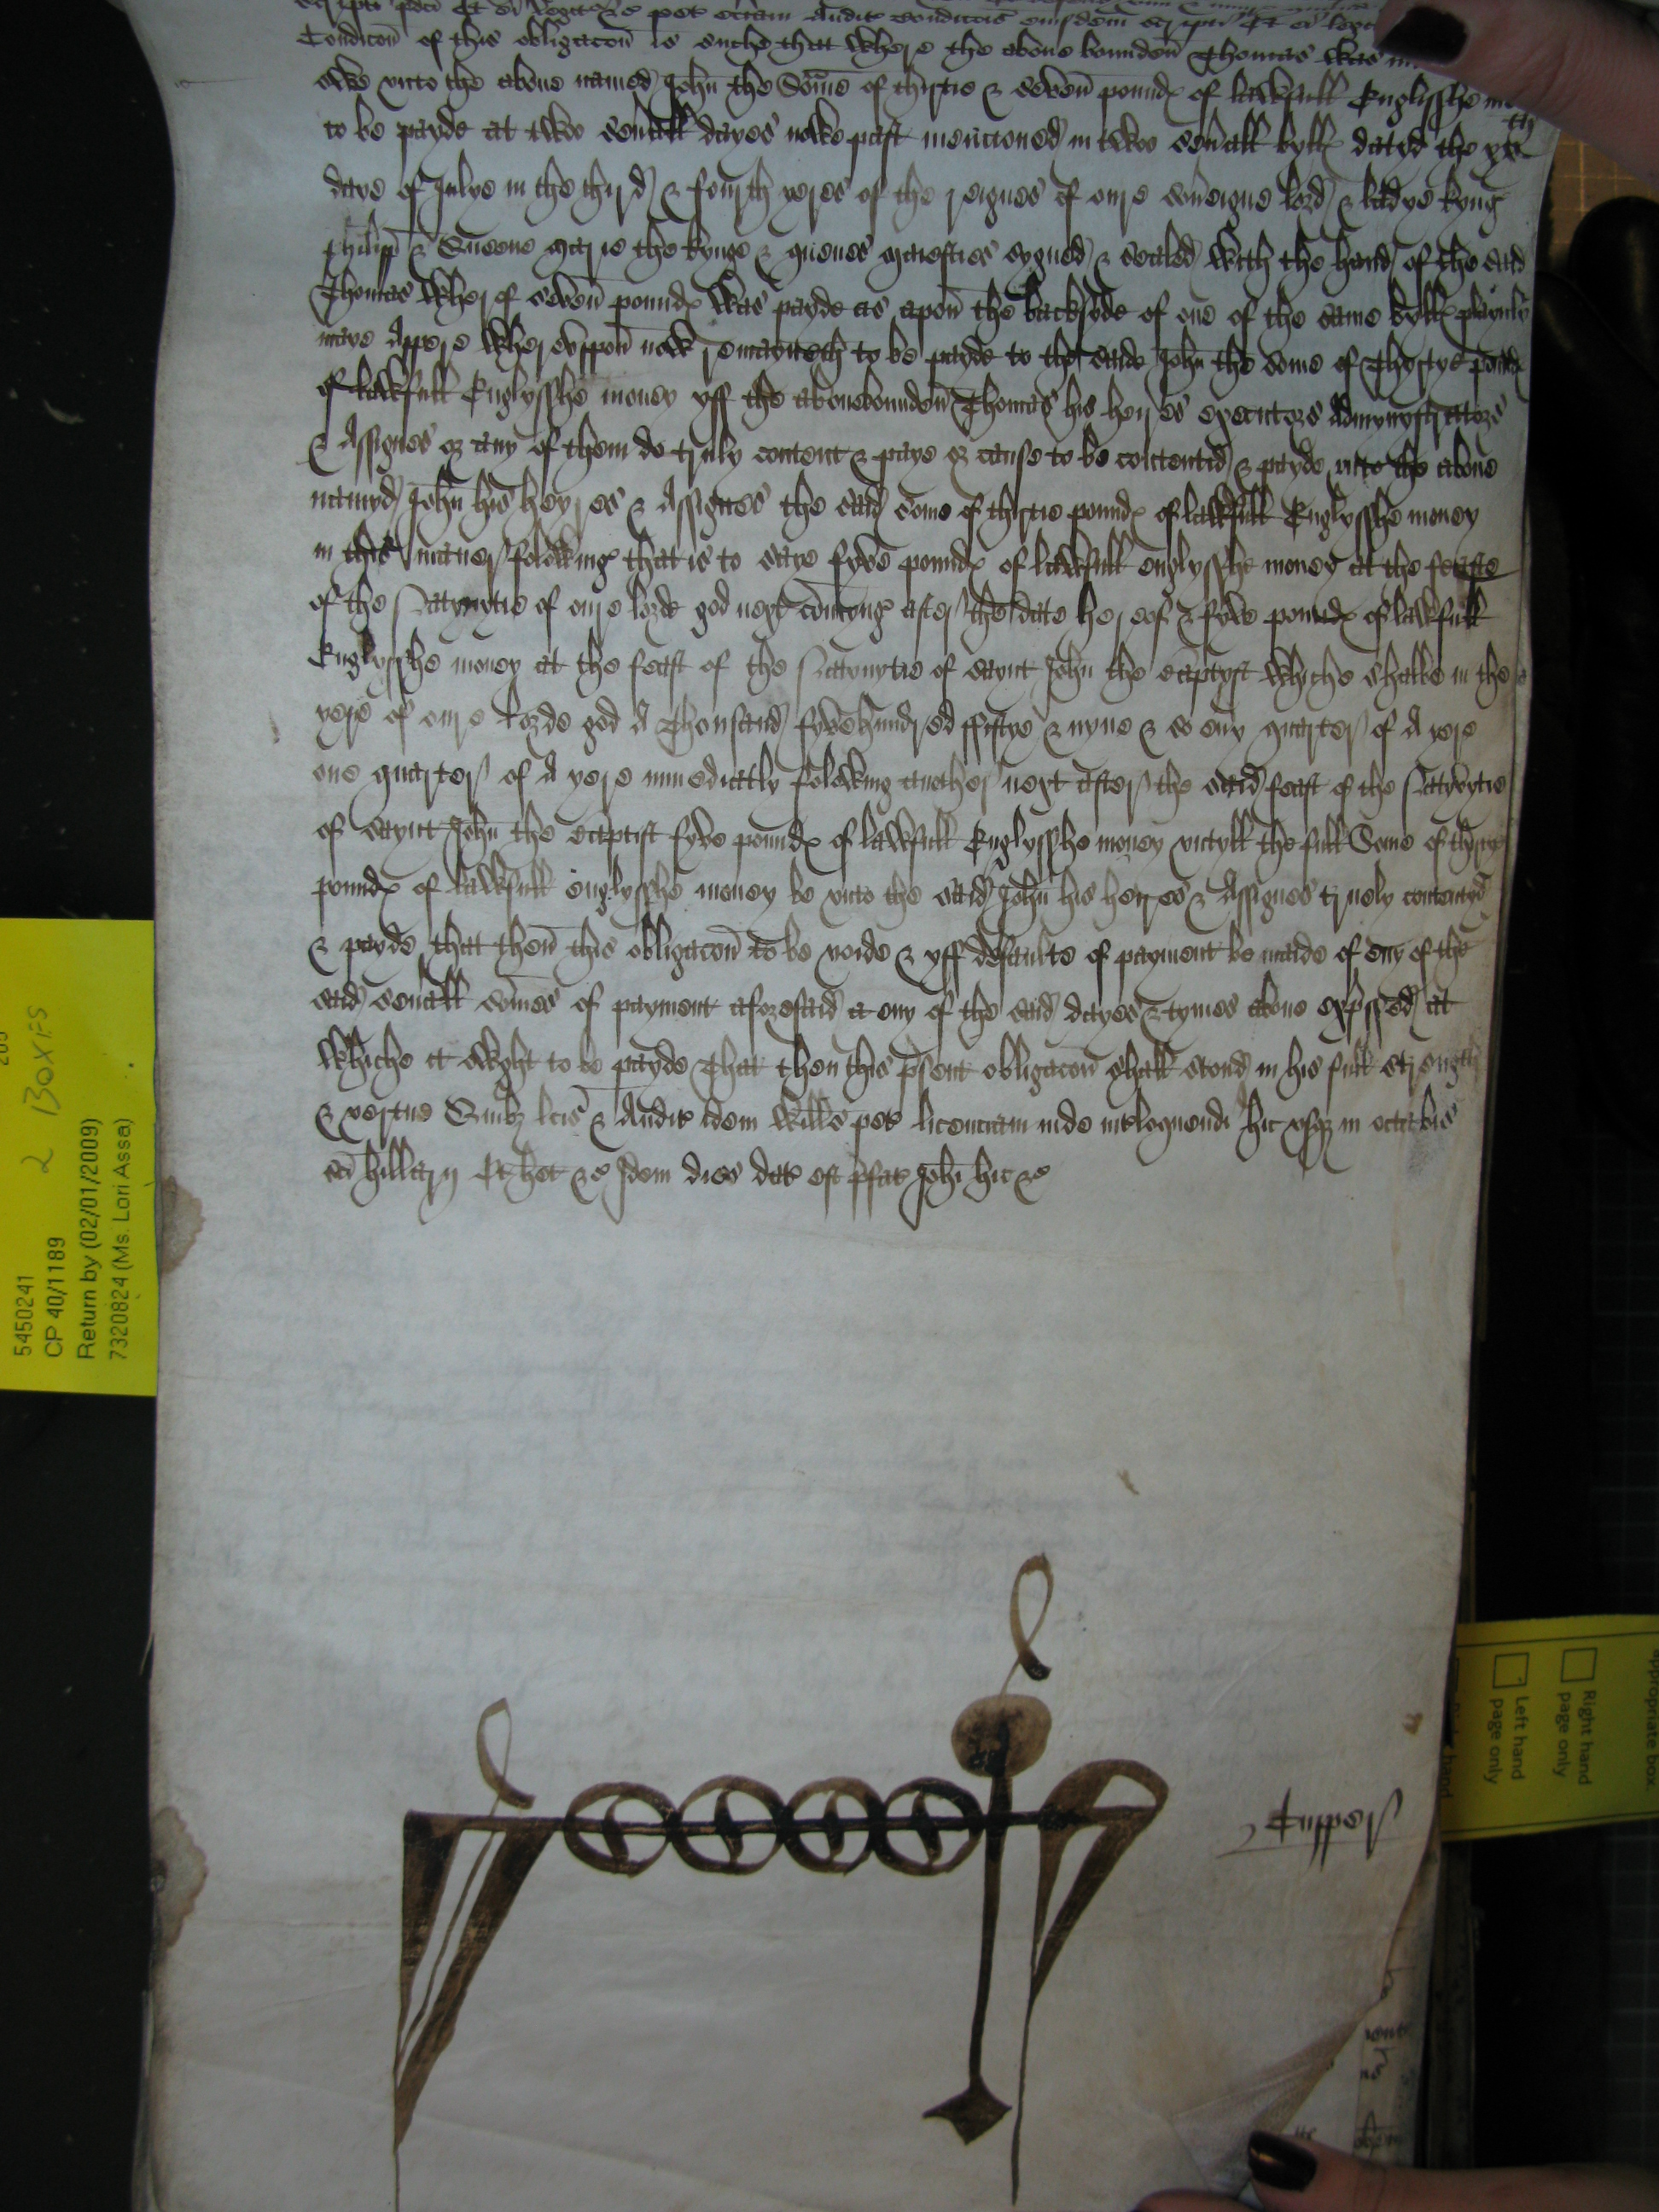 Condicon of this obligacon is suche that where the above bounden Thomas was
owe unto the above named John the Some of thirtie & seven pound of lawfull Englysshe
to be payde at two seuall dayes nowe past mencioned in two seuall bylls datyd the xxth
daye of Julye in the thyrd & fourth yeres of the reignes of oure souereigne lord & ladye kyng
Philipp & Queene Marie the kynge & quenes Maiesties sygned & sealed with the hand of the said
Thomas Wherof seven pound was payde as apon the backsyde of one of the same bylls playnly
maye Appere Wheruppon now remayneth to be payde to the saide John the some of Thyrtye pound
of lawfull Englysshe money yff the abovebounden Thomas his heyres executors Admynystrators
& Assignes or any of them do truly content & paye or cause to be contentid & payde unto the above
namyd John his heyres & Assignes the said some of thirtie pound of lawfull Englysshe money
in this maner folowing that is to saye fyve pound of lawfull englysshe money at the feaste
of the Natyvytie of oure lorde god next comyng after the date hereof & fyve pound of lawfull
Englysshe money at the feast of the Natyvytie of saynt John the baptyst whiche shalbe in the
yere of oure lorde god A Thousand fyvehundred fyftye & nyne & so euy quarter of A yere
one quarter of A yere immediatly folowing another next after the said feast of the Natyvytie
of saynt John the baptist fyve pound of lawfull Englysshe money untyll the full Some of thyrtye
pound of lawfull englysshe money be unto the said John his heyres & Assignes truely contentyd
& payde that then this obligacon to be voide & yff defaulte of payment be made of eny of the
said seuall somes of payment aforesaid at eny of the said dayes & tymes above expssed at
whiche it owght to be payde That then this psent obligacon shall stond in his full strength
& vertue Quibz lcis & Audit idem Wills pet licenciam inde intloquendi hic usqz in octabis
sci hillarij Et het &c Idem dies dat est pfat Johi hic &c
Tupper
5450241
CP 40/1189
Return by (02/01/2009)
7320824 (Ms. Lori Assa)
2 BOXES
appropriate box.
Right hand
page only
Left hand
page only